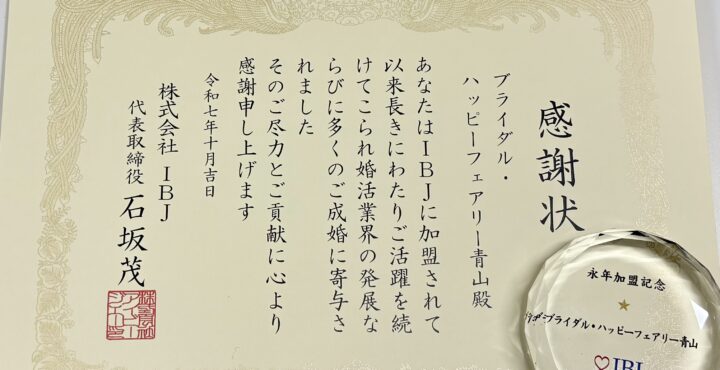 感謝状
ブライダル・
ハッピーフェアリー青山殿
あなたはIBJに加盟されて
以来長きにわたりご活躍を続
けてこられ婚活業界の発展な
らびに多くのご成婚に寄与さ
れました
そのご尽力とご貢献に心より
感謝申し上げます
令和七年十月吉日
株式会社 IBJ
代表取締役 石坂茂
永年加盟記念
ブライダル・ハッピーフェアリー青山
IBJ